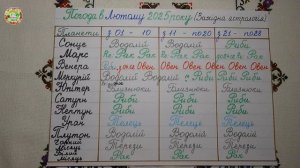 Погода в Лютому 2025 року (Західна астрологія)
Планети з 01 - 10 з 11 - по 20 з 21 - по 28
Сонце Водолій Водолій Риби
Марс Рак Рак Рак
Венера Овен Овен Овен Овен Овен
Меркурій Водолій Водолій Риби Риби
Юпітер Близнюки Близнюки Близнюки
Сатурн Риби Риби Риби
Нептун Риби Риби Риби
Уран Телець Телець Телець
Плутон Водолій Водолій Водолій
Місяць Терези Терези Терези
Місяць Рак Рак Рак